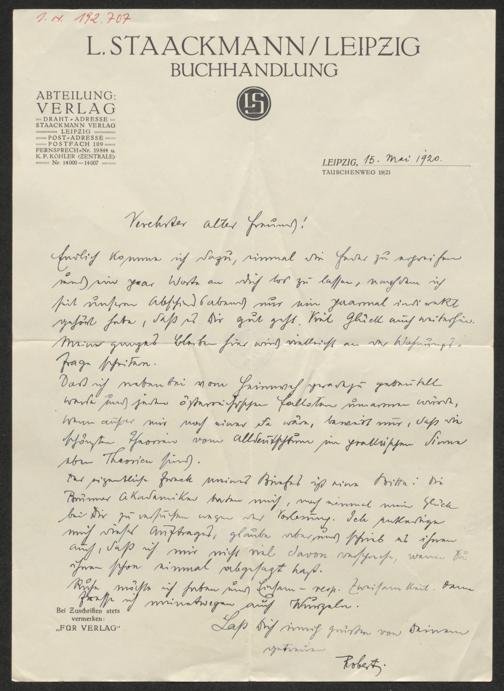 I. N. 192.707
L. STAACKMANN/LEIPZIG
BUCHHANDLUNG
LS
ABTEILUNG:
VERLAG
DRAHT-ADRESSE
STAACKMANN VERLAG
LEIPZIG
POST-ADRESSE
POSTFACH 109
FERNSPRECH-Nr. 19844 u.
K. F. KÖHLER (ZENTRALE)
Nr 14000–14007
LEIPZIG, 15. Mai 1920.
TÄUBCHENWEG 19/21
Verehrter alter Freund!
Endlich komme ich dazu, einmal die Feder zu ergreifen
und ein paar Worte an Dich los zu lassen, nachdem ich
seit unserem Abschiedsabend nur ein paarmal indirekt
gehört habe, daß es Dir gut geht. Viel Glück auch weiterhin.
Mein ganzes Bleiben hier wird vielleicht an der Wohnungs-
frage scheitern.
Daß ich nebenbei vom Heimweh geradezu gebeutelt
werde und jeden österreichischen umarmen würde,
wenn außer mir noch einer da wäre, beweist nur, daß die
schönsten Theorien vom Alldeutschtum im praktischen Sinne
eben Theorien sind.
Der eigentliche Zweck meines Briefes ist eine Bitte: Die
Brünner Akademiker baten mich, noch einmal mein Glück
bei Dir zu versuchen wegen der Vorlesung. Ich entledige
mich dieses Auftrages, glaube aber, und schrieb es ihnen
auch, daß ich mir nicht viel davon verspreche, wenn Du
ihnen schon einmal abgesagt hast.
Ruhe möchte ich haben und Einsam- resp. Zweisamkeit. Dann
fresse ich meinetwegen auch Wurzeln.
Laß Dich innig grüßen von Deinem
getreuen
Robert.
Bei Zuschriften stets
vermerken:
„FÜR VERLAG"